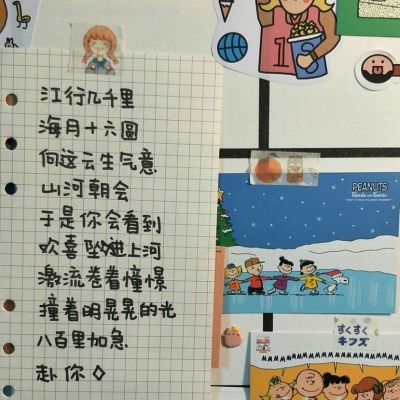 江行几千里
海月十六圆
向这云生气意
山河朝会
于是你会看到
欢喜坠进上河
激流卷着憧憬
撞着明晃晃的光
八百里加急
赴你◇
PEANUTS
すくすく
キッズ